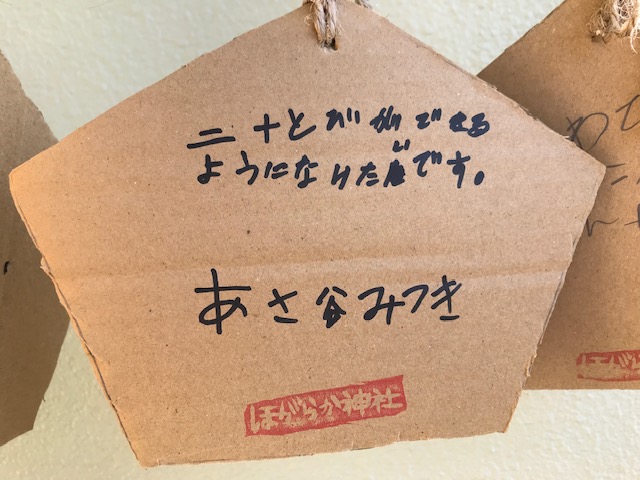 二十とびができる
ようになりたいです。
あさ谷みつき
ほがらか神社